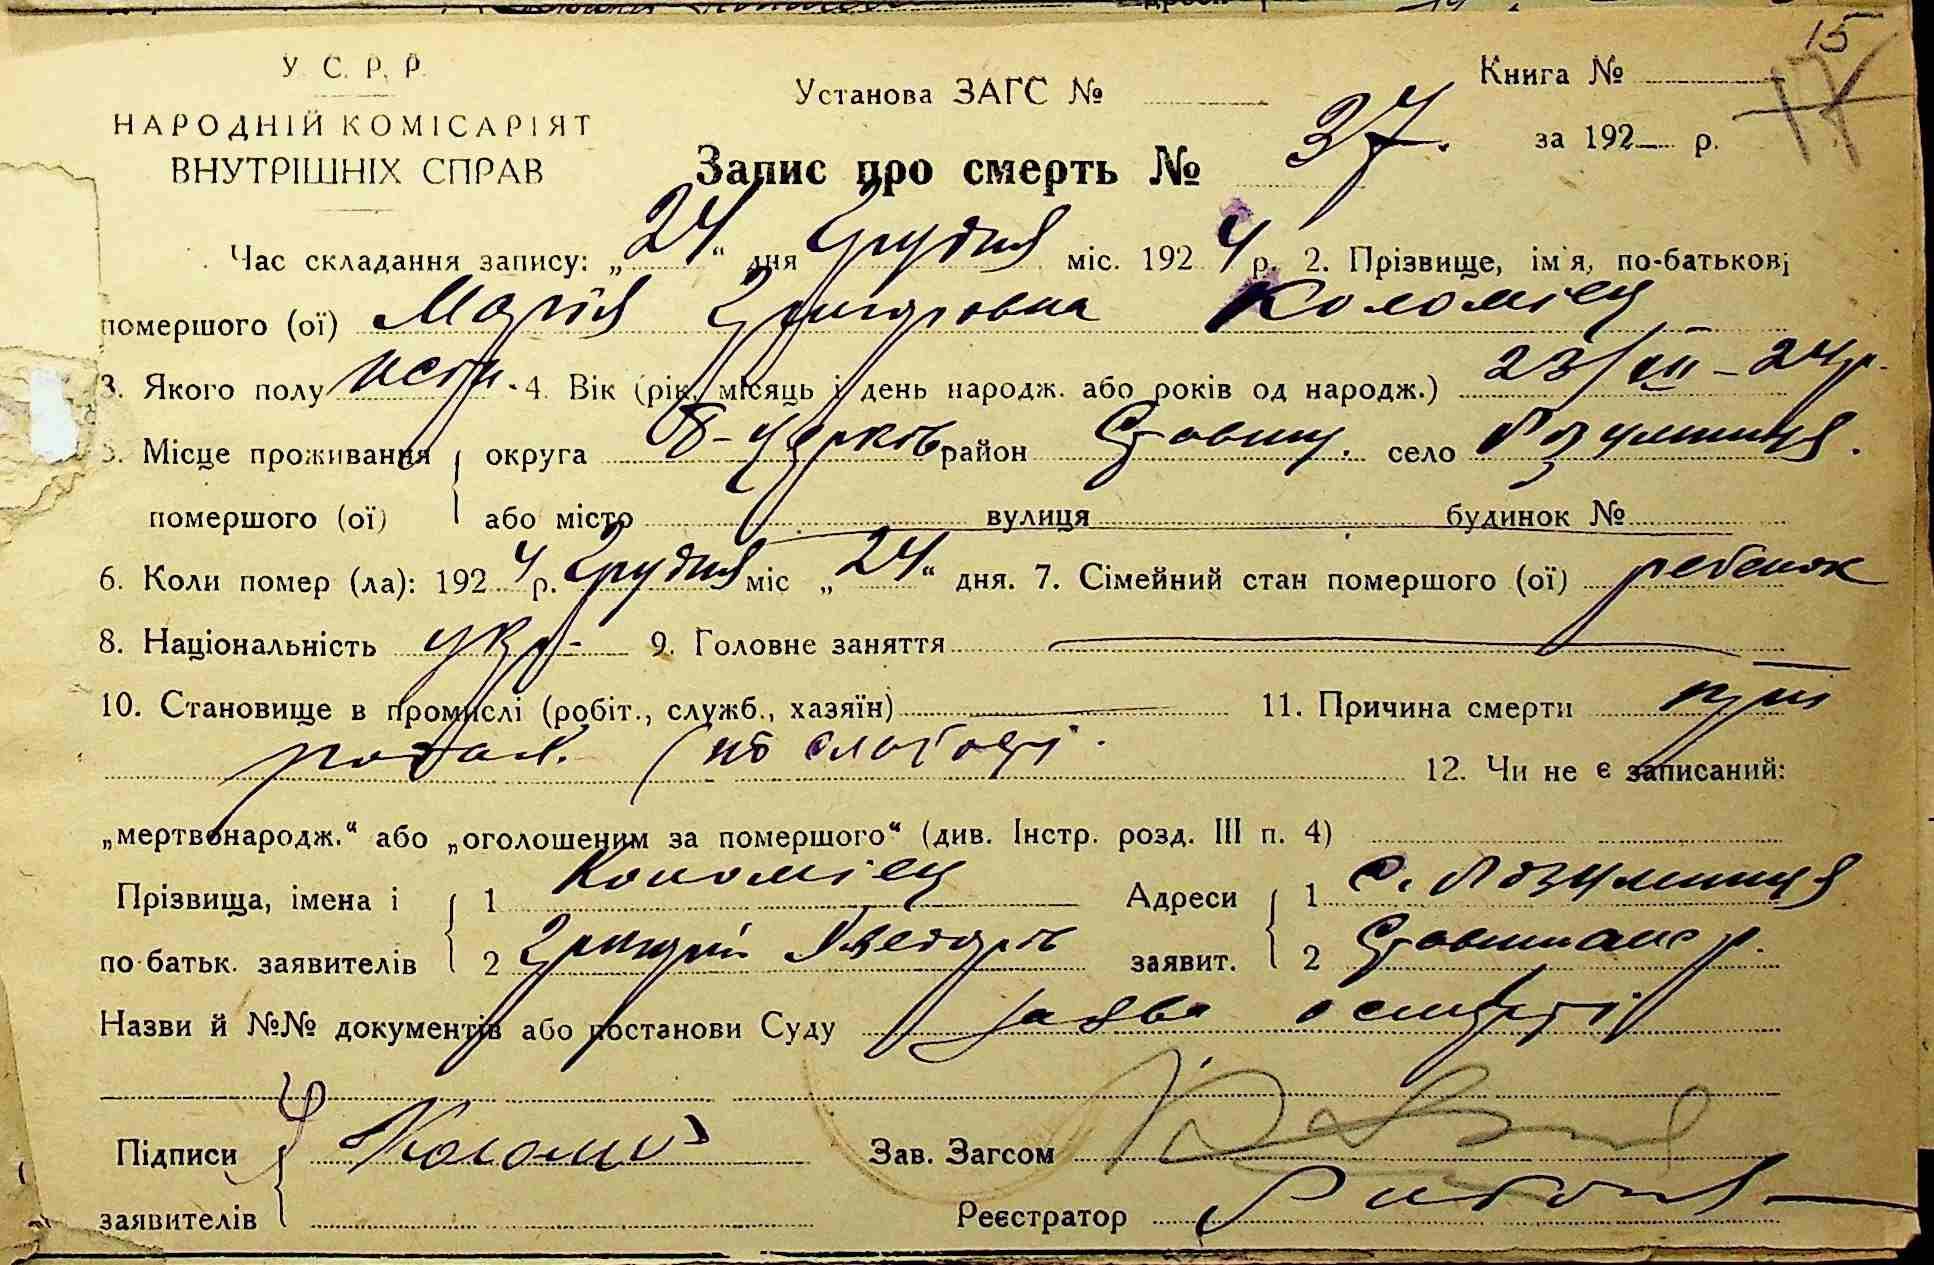 15
17
У. С. Р. Р.
НАРОДНІЙ КОМІСАРІЯТ
ВНУТРІШНІХ СПРАВ
Установа ЗАГС №
Книга №
за 192 р.
Запис про смерть № 37.
Час складання запису: „24“ дня Грудня міс. 1924 р. 2. Прізвище, імя, по-батькові
помершого (ої) Марія Григоровна Коломієц
3. Якого полу жен. 4. Вік (рік, місяць і день народж. або років од народж.) 23/XII-24 р.
5. Місце проживання округа Б-Церків район Ставищ. село Розумниця.
помершого (ої) або місто вулиця будинок №
6. Коли помер (ла): 1924 р. Грудня міс „24“ дня. 7. Сімейний стан помершого (ої) ребенок
8. Національність укр- 9. Головне заняття
10. Становище в промислі (робіт., служб., хазяїн) 11. Причина смерти при
родах. (по слабості.
12. Чи не є записаний:
„мертвонародж.“ або „оголошеним за помершого“ (див. Інстр. розд. III п. 4)
Прізвища, імена і 1 Коломієц Адреси 1 с. Розумниця
по-батьк. заявителів 2 Григорій заявит. 2 р.
Назви й №№ документів або постанови Суду заява о смерті
Підписи Коломієць Зав. Загсом
заявителів Реєстратор